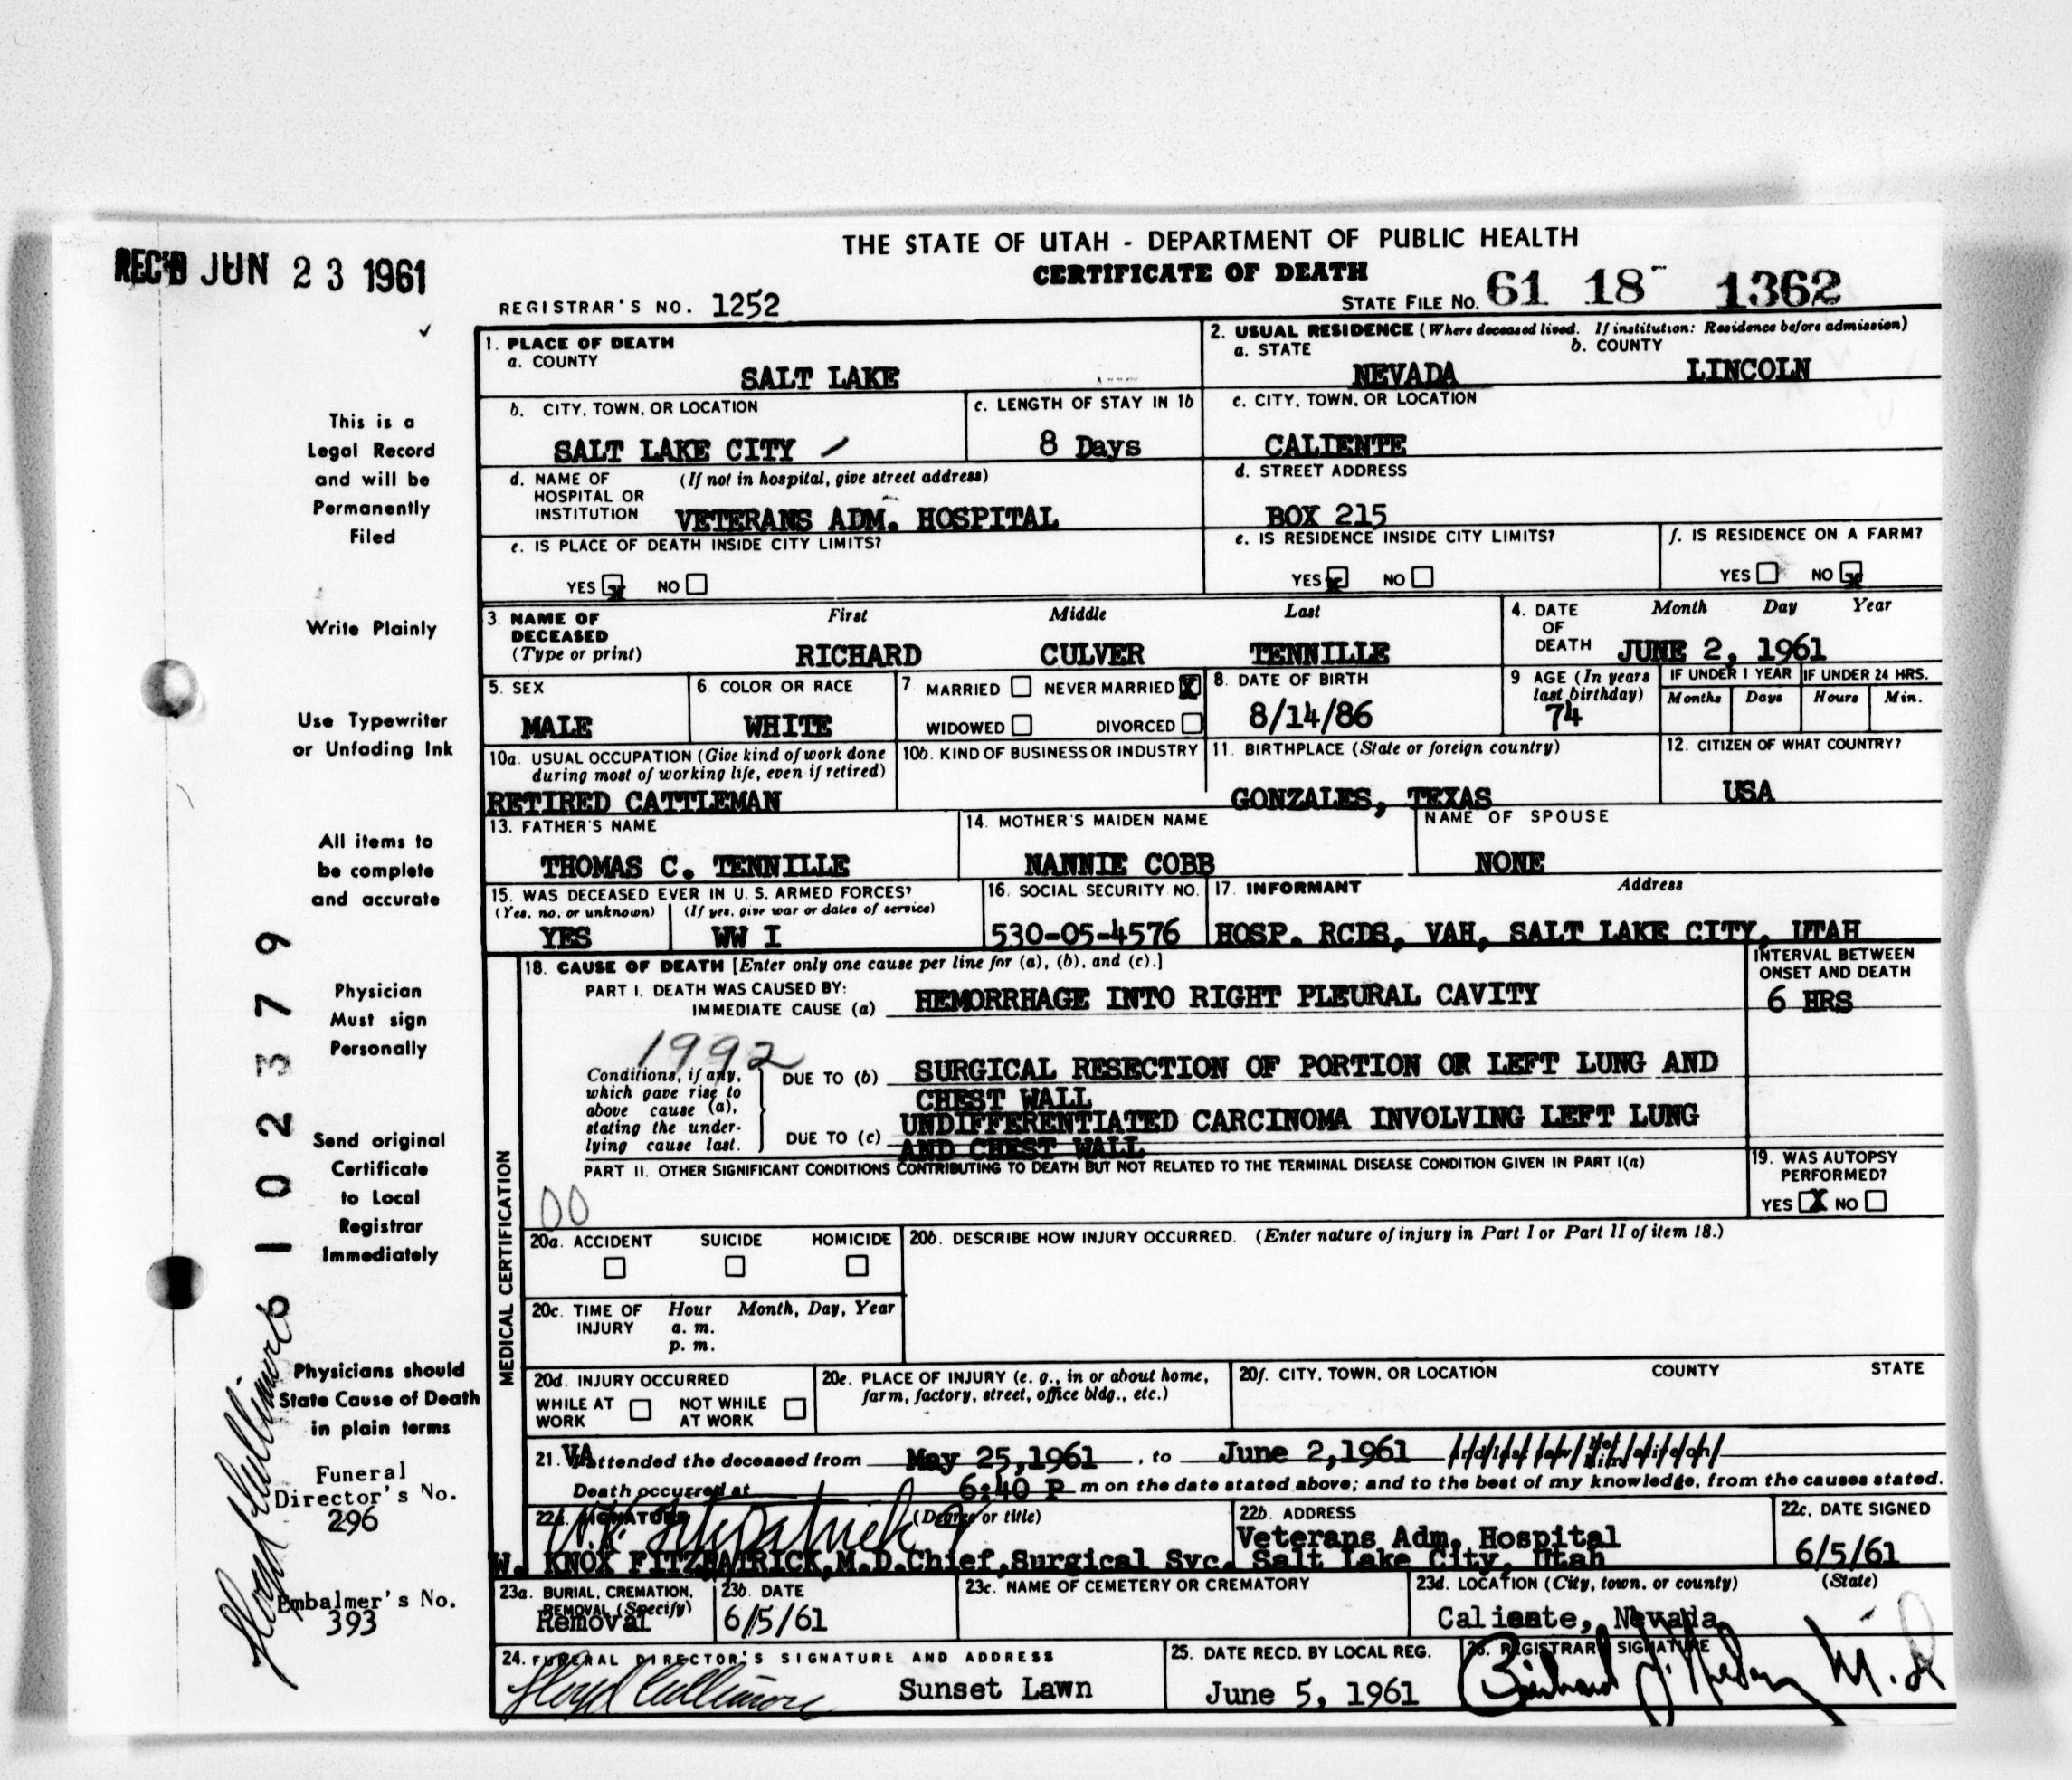 THE STATE OF UTAH - DEPARTMENT OF PUBLIC HEALTH
CERTIFICATE OF DEATH
REC'D JUN 23 1961
REGISTRAR'S NO. 1252
STATE FILE NO. 61 18 1362
This is a
Legal Record
and will be
Permanently
Filed
Write Plainly
Use Typewriter
or Unfading Ink
All items to
be complete
and accurate
Physician
Must sign
Personally
Send original
Certificate
to Local
Registrar
Immediately
Physicians should
State Cause of Death
in plain terms
Funeral
Director's No.
296
Embalmer's No.
393
61 02379
Floyd Cullimore
1. PLACE OF DEATH
a. COUNTY
SALT LAKE
2. USUAL RESIDENCE (Where deceased lived. If institution: Residence before admission)
a. STATE
NEVADA
b. COUNTY
LINCOLN
b. CITY, TOWN, OR LOCATION
SALT LAKE CITY
c. LENGTH OF STAY IN 1b
8 Days
c. CITY, TOWN, OR LOCATION
CALIENTE
d. NAME OF (If not in hospital, give street address)
HOSPITAL OR
INSTITUTION VETERANS ADM. HOSPITAL
d. STREET ADDRESS
BOX 215
e. IS PLACE OF DEATH INSIDE CITY LIMITS?
YES X NO
e. IS RESIDENCE INSIDE CITY LIMITS?
YES X NO
f. IS RESIDENCE ON A FARM?
YES NO X
3. NAME OF
DECEASED
(Type or print)
First Middle Last
RICHARD CULVER TENNILLE
4. DATE
OF
DEATH
Month Day Year
JUNE 2, 1961
5. SEX
MALE
6. COLOR OR RACE
WHITE
7 MARRIED NEVER MARRIED X
WIDOWED DIVORCED
8. DATE OF BIRTH
8/14/86
9 AGE (In years
last birthday)
74
IF UNDER 1 YEAR
Months Days
IF UNDER 24 HRS.
Hours Min.
10a. USUAL OCCUPATION (Give kind of work done
during most of working life, even if retired)
RETIRED CATTLEMAN
10b. KIND OF BUSINESS OR INDUSTRY
11. BIRTHPLACE (State or foreign country)
GONZALES, TEXAS
12. CITIZEN OF WHAT COUNTRY?
USA
13. FATHER'S NAME
THOMAS C. TENNILLE
14. MOTHER'S MAIDEN NAME
NANNIE COBB
NAME OF SPOUSE
NONE
15. WAS DECEASED EVER IN U. S. ARMED FORCES?
(Yes, no, or unknown) (If yes, give war or dates of service)
YES WW I
16. SOCIAL SECURITY NO.
530-05-4576
17. INFORMANT Address
HOSP. RCDS, VAH, SALT LAKE CITY, UTAH
MEDICAL CERTIFICATION
18. CAUSE OF DEATH [Enter only one cause per line for (a), (b), and (c).]
PART I. DEATH WAS CAUSED BY:
IMMEDIATE CAUSE (a) HEMORRHAGE INTO RIGHT PLEURAL CAVITY
INTERVAL BETWEEN
ONSET AND DEATH
6 HRS
1992
Conditions, if any,
which gave rise to
above cause (a),
stating the under-
lying cause last.
DUE TO (b) SURGICAL RESECTION OF PORTION OR LEFT LUNG AND
CHEST WALL
DUE TO (c) UNDIFFERENTIATED CARCINOMA INVOLVING LEFT LUNG
AND CHEST WALL
PART II. OTHER SIGNIFICANT CONDITIONS CONTRIBUTING TO DEATH BUT NOT RELATED TO THE TERMINAL DISEASE CONDITION GIVEN IN PART I(a)
00
19. WAS AUTOPSY
PERFORMED?
YES X NO
20a. ACCIDENT SUICIDE HOMICIDE
20b. DESCRIBE HOW INJURY OCCURRED. (Enter nature of injury in Part I or Part II of item 18.)
20c. TIME OF
INJURY
Hour Month, Day, Year
a. m.
p. m.
20d. INJURY OCCURRED
WHILE AT
WORK
NOT WHILE
AT WORK
20e. PLACE OF INJURY (e. g., in or about home,
farm, factory, street, office bldg., etc.)
20f. CITY, TOWN, OR LOCATION COUNTY STATE
21. VA attended the deceased from May 25,1961, to June 2,1961
Death occurred at 6:40 P m on the date stated above; and to the best of my knowledge, from the causes stated.
22a. SIGNATURE (Degree or title)
W.K. Fitzpatrick
W. KNOX FITZPATRICK,M.D.Chief,Surgical Svc.
22b. ADDRESS
Veterans Adm. Hospital
Salt Lake City, Utah
22c. DATE SIGNED
6/5/61
23a. BURIAL, CREMATION,
REMOVAL (Specify)
Removal
23b. DATE
6/5/61
23c. NAME OF CEMETERY OR CREMATORY
23d. LOCATION (City, town, or county) (State)
Caliente, Nevada
24. FUNERAL DIRECTOR'S SIGNATURE AND ADDRESS
Floyd Cullimore Sunset Lawn
25. DATE RECD. BY LOCAL REG.
June 5, 1961
26. REGISTRAR'S SIGNATURE
M.D